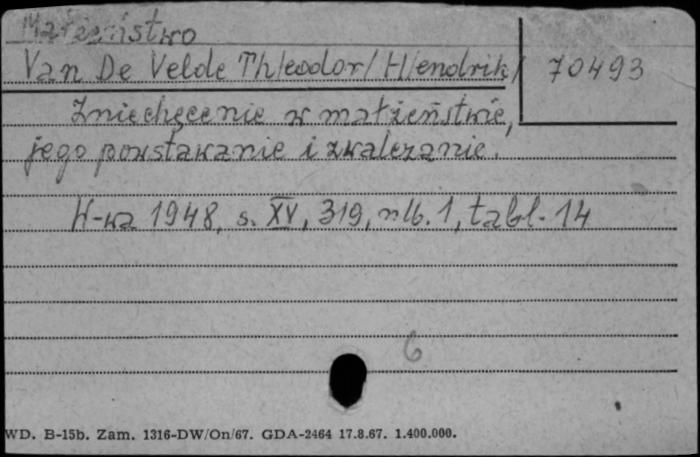 Małżeństwo
Van De Velde Th/eodor/ H/endrik/ 70493
Zniechęcenie w małżeństwie,
jego powstawanie i zwalczanie.
W-wa 1948, s. XV, 319, nlb. 1, tabl. 14
6
WD. B-15b. Zam. 1316-DW/On/67. GDA-2464 17.8.67. 1.400.000.